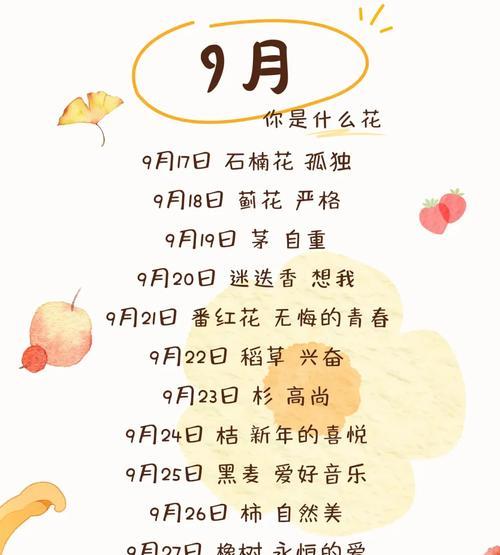 9月
你是什么花
9月17日 石楠花 孤独
9月18日 蓟花 严格
9月19日 茅 自重
9月20日 迷迭香 想我
9月21日 番红花 无悔的青春
9月22日 稻草 兴奋
9月23日 杉 高尚
9月24日 桔 新年的喜悦
9月25日 黑麦 爱好音乐
9月26日 柿 自然美
9月27日 橡树 永恒的爱